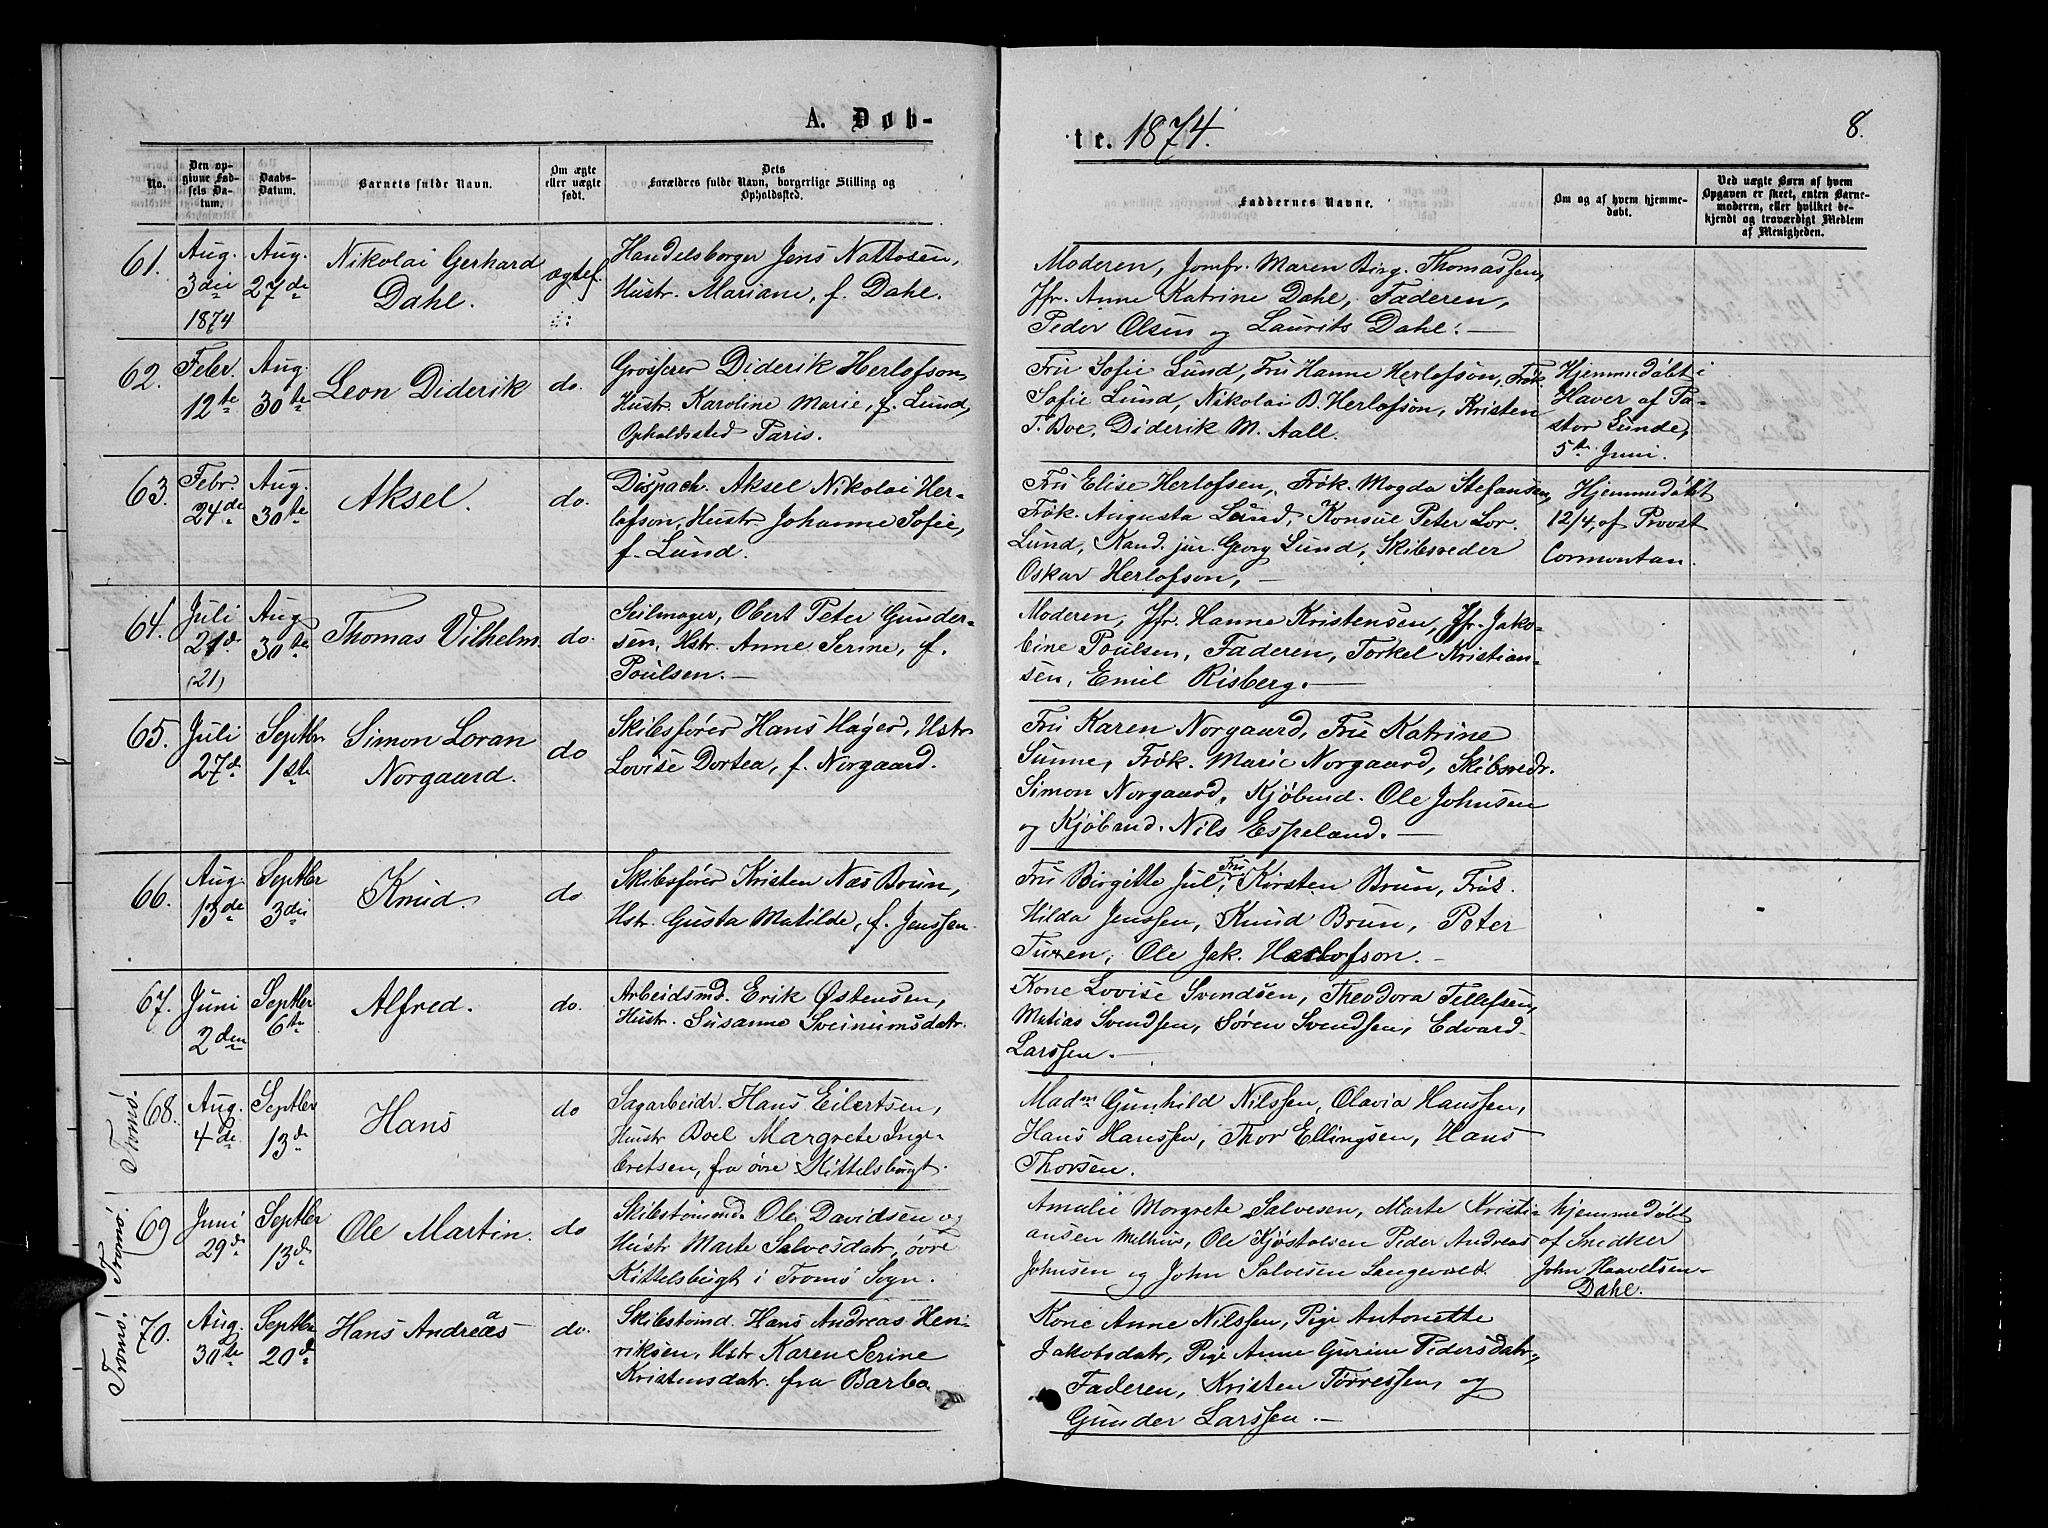 A. Døb-
te. 1874.
8.
No.
Den op-
givne Fød-
sels Da-
tum.
Daabs-
Datum.
Barnets fulde Navn.
Om ægte
eller uægte
født.
Dets
Forældres fulde Navn, borgerlige Stilling og
Opholdssted.
Faddernes Navne.
Om og af hvem hjemme-
døbt.
Ved uægte Børn af hvem
Opgaven er skeet, enten Barne-
moderen, eller hvilket be-
kjendt og troværdigt Medlem
af Menigheden.
61.
Aug.
3die
1874
Aug.
27de
Nikolai Gerhard
Dahl.
ægtef.
Handelsborger Jens Nattosen,
Hustr. Mariane, f. Dahl.
Moderen, Jomfr. Maren Birg. Thomassen,
Jfr. Anne Katrine Dahl, Faderen,
Peder Olsen og Laurits Dahl. —
62.
Febr.
12te
Aug.
30te
Leon Diderik
do.
Grosserer Diderik Herlofson,
Hustr. Karoline Marie, f. Lund,
Opholdssted Paris.
Fru Sofie Lund, Fru Hanne Herlofson, Frøk.
Sofie Lund, Nikolai B. Herlofson, Kristen
T. Boe, Diderik M. Aall.
Hjemmedøbt i
Haver af Pa-
stor Lunde,
5te Juni.
63.
Febr.
24de
Aug.
30te
Aksel.
do.
Dispach. Aksel Nikolai Her-
lofson, Hustr. Johanne Sofie,
f. Lund.
Fru Elise Herlofsen, Frøk. Magda Stefansen,
Frøk. Augusta Lund, Konsul Peter Lor.
Lund, Kand. jur. Georg Lund, Skibsreder
Oskar Herlofson, —
Hjemmedøbt
12/4, af Provst
Cormontan.
64.
Juli
21d.
(21)
Aug
30te
Thomas Vilhelm.
do.
Seilmager, Obert Peter Gunder-
sen, Hstr. Anne Serine, f.
Poulsen. —
Moderen, Jfr. Hanne Kristensen, Jfr. Jako-
bine Poulsen, Faderen, Torkel Kristian-
sen, Emil Risberg. —
65.
Juli
27d.
Septbr
1ste
Simon Loran
Norgaard.
do
Skibsfører Hans Høger, Hstr.
Lovise Dortea, f. Norgaard.
Fru Karen Norgaard, Fru Katrine
Sunne, Frøk. Marie Norgaard, Skibsredr.
Simon Norgaard, Kjøbmd. Ole Johnsen
og Kjøbmd. Nils Espeland. —
66.
Aug.
13de
Septbr
3die
Knud.
do
Skibsfører Kristen Næs Brun,
Hstr. Gusta Matilde, f. Jenssen.
Fru Birgitte Jul, Fru Kirsten Brun, Frøk.
Hilda Jenssen, Knud Brun, Peter
Furen, Ole Jak. Herlofson. —
67.
Juni
2den
Septbr
6te
Alfred.
do.
Arbeidsmd. Erik Østensen,
Hustr. Susanne Sveinumsdatr.
Kone Lovise Svendsen, Theodora Tellefsen,
Matias Svendsen, Søren Svendsen, Edvard
Larssen. —
Tromø.
68.
Aug.
4de
Septbr
13d.
Hans
do
Sagarbeidr. Hans Eilertsen,
Hustr Boel Margrete Inge-
bretsen, fra øvre Kittelsbugt.
Madm Gunhild Nilssen, Olavia Hanssen,
Hans Hanssen, Thor Ellingsen, Hans
Thorsen.
Tromø.
69
Juni
29d.
Septbr
13d.
Ole Martin.
do
Skibstømmd. Ole Davidsen og
Hustr Marte Salvesdatr, øvre
Kittelsbugt i Tromø Sogn.
Amalie Morgrete Salvesen, Marte Kristi-
ansen Melhus, Ole Kjøstolsen Peder Andreas
Johnsen og John Salvesen Langevold.
hjemmedøbt
af Snedker
John Haavelsen
Dahl.
Tromø.
70.
Aug.
30te
Septbr
20d.
Hans Andreas
do.
Skibstømd. Hans Andreas Hen-
riksen, Hstr Karen Serine
Kristensdatr. fra Barbo
Kone Anne Nilssen, Pige Antonette
Jakobsdatr, Pige Anne Gurine Pedersdatr,
Faderen, Kristen Tørressen, og
Gunder Larssen. —